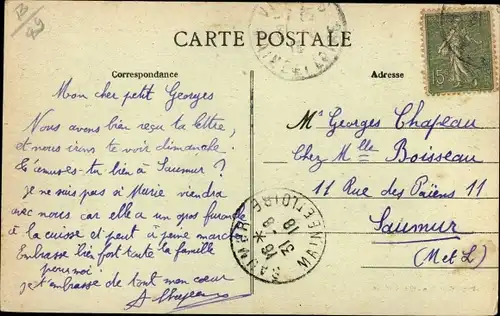 B
99
CARTE POSTALE
Correspondance
Adresse
15c
Mon cher petit Georges
Nous avons bien reçu ta lettre,
et nous irons te voir dimanche.
Es'amuses-tu bien à Saumur ?
je ne sais pas si Marie viendra
avec nous car elle a un gros furoncle
à la cuisse et peut à peine marcher
Embrasse bien fort toute la famille
pour moi.
je t'embrasse de tout mon cœur
Mr Georges Chapeau
Chez Melle Boisseau
11 Rue des Païens 11
Saumur
(M et L)
MAINE ET LOIRE